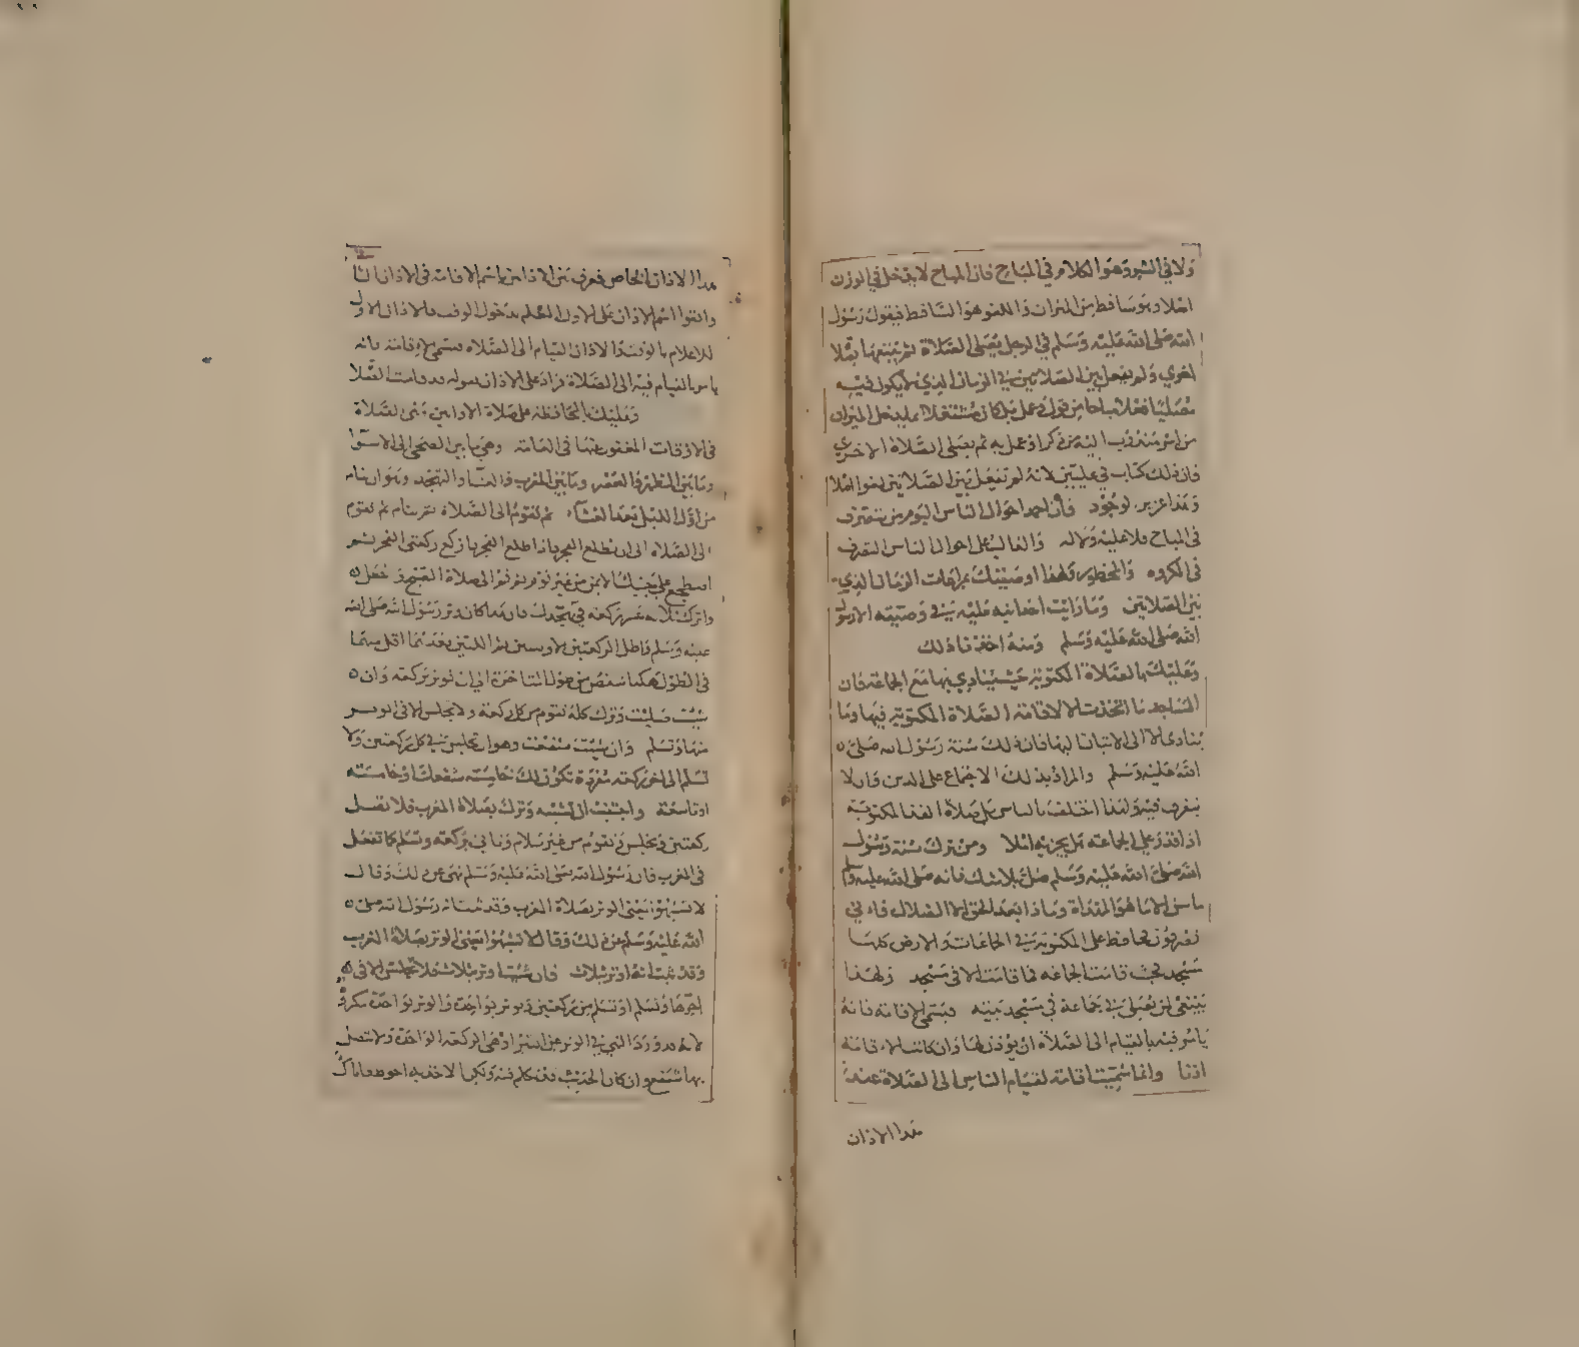 ولا في الشر وهو الكلام في المباح فان المباح لا يدخل في الوزن
اصلا وهو ساقط من الميزان واللغو هو الساقط فيقول رسول
الله صلى الله عليه وسلم في الرجل يصلى الصلاة ثم يتبعها بصلاة
اخري ولم يفصل بين الصلاتين في الزمان الذي لا يكون فيه
مصليا فعلا مباحا من قول وعمل بل كان مشتغلا بما يدخل الميزان
من امر مندوب اليه من ذكر او عمل به ثم يصلى الصلاة الاخري
فان ذلك كتاب في عليين لانه لم يفعل بين الصلاتين لغوا اصلا
وهذا عزيز الوجود فان احمد احوال الناس اليوم من يتصرف
في المباح فلا عليه ولا له والغالب على احوال الناس التصرف
في المكروه والمحظور ولهذا اوصيتك بمراعات الزمان الذي
بين الصلاتين وما رايت احدا نبه عليه في وصيته الا رسول
الله صلى الله عليه وسلم ومنه اخذنا ذلك
وعليك بالصلاة المكتوبة حيث ينادي بها مع الجماعة فان
المساجد ما اتخذت الا لاقامة الصلاة المكتوبة فيها وما
ينادى الا الى الاتيان اليها فان ذلك سنة رسول الله صلى
الله عليه وسلم والمراد بذلك الاجتماع على الدين وان لا
يتفرق فيه ولهذا اختلف الناس في صلاة الفذ المكتوبة
اذا قدر على الجماعة هل تجزيه ام لا ومن ترك سنة رسول
الله صلى الله عليه وسلم ضل بلا شك فانه صلى الله عليه وسلم
ما سن الا ما هو الهداة وماذا بعد الحق الا الضلال فاني
تصرفون فحافظ على المكتوبة في الجماعات والارض كلها
مسجد فحيث قامت الجماعة فما قامت الا في مسجد ولهذا
ينبغي لمن يصلى في جماعة في مسجد بيته فبسمى الاقامة فانه
يامر فيه بالقيام الى الصلاة ان يؤذن لها وان كانت الاقامة
اذنا وانما سميت اقامة لقيام الناس الى الصلاة عند
هذا الاذان
هذا الاذان الخاص ففرق بين الاذانين باسم الاقامة في الاذان الثا
وابقوا اسم الاذان على الاول المعلم بدخول الوقت فالاذان الاول
للاعلام بالوقت والاذان القيام الى الصلاة يسمى الاقامة بانه
يامر بالقيام فيه الى الصلاة فزاد على الاذان بقوله قد قامت الصلا
وعليك بالمحافظة على صلاة الاوابين وهي الصلاة
في الاوقات المغفول عنها في العامة وهي ما بين الضحى الى الاستوا
وما بين الظهر والعصر وما بين المغرب والعشا والتهجد وهو ان ينام
من اول الليل بعد العشاء ثم تقوم الى الصلاة ثم تنام ثم تقوم
الى الصلاة الى ان يطلع الفجر فاذا طلع الفجر فاركع ركعتى الفجر ثم
اضطجع على جنبك الايمن من غير نوم ثم قم الى صلاة الصبح
واترك ثلاث عشرة ركعة في تهجدك فان هذا كان وتر رسول الله صلى الله
عليه وسلم فاطل الركعتين الاوليين ثم اللتين بعدهما اقل منهما
في الطول هكذا
شيت صليت وترك كله تقوم من كل ركعة ولا تجلس الا في الوتر
منها وتسلم وان شيت شفعت وهو ان تجلس في كل ركعتين ولا
تسلم الى اخر ركعة مفردة تكون تلك خامسة شفعك او خامسة
او تاسعة واجتنب ان تشبه وترك بصلاة المغرب فلا تصل
ركعتين وتجلس وتقوم من غير سلام وتاتي بركعة وتسلم كما تفعل
في المغرب فان رسول الله صلى الله عليه وسلم نهى عن ذلك وقال
لا تشبهوا يعني الوتر بصلاة المغرب وقد ثبت انه رسول الله صلى
الله عليه وسلم عن ذلك وقال لا تشبهوا يعني الوتر بصلاة المغرب
وقد ثبت انه اوتر بثلاث فان شيت اوتر بثلاث فلا تجلس الا في
اخرها وتسلم او تسلم من ركعتين وتوتر بواحدة والوتر بواحدة مكروه
لانه قد ورد النهي في الوتر عن البتيرا وهى الركعة الواحدة ولا تتصل
بها شفع وان كان الحديث فقد تكلم فيه ولكن الاخذ به احوط